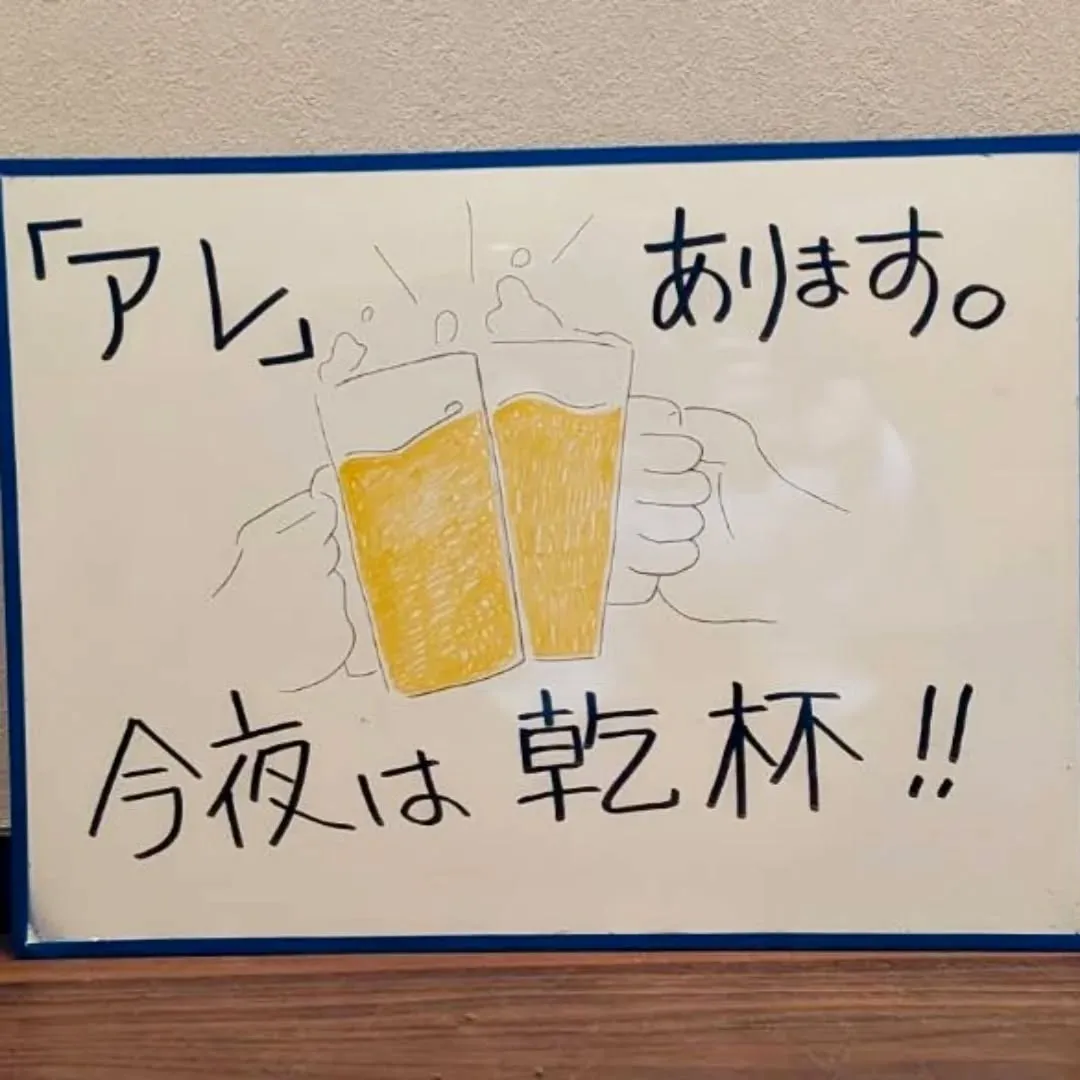 「アレ」 あります。
今夜は乾杯!!